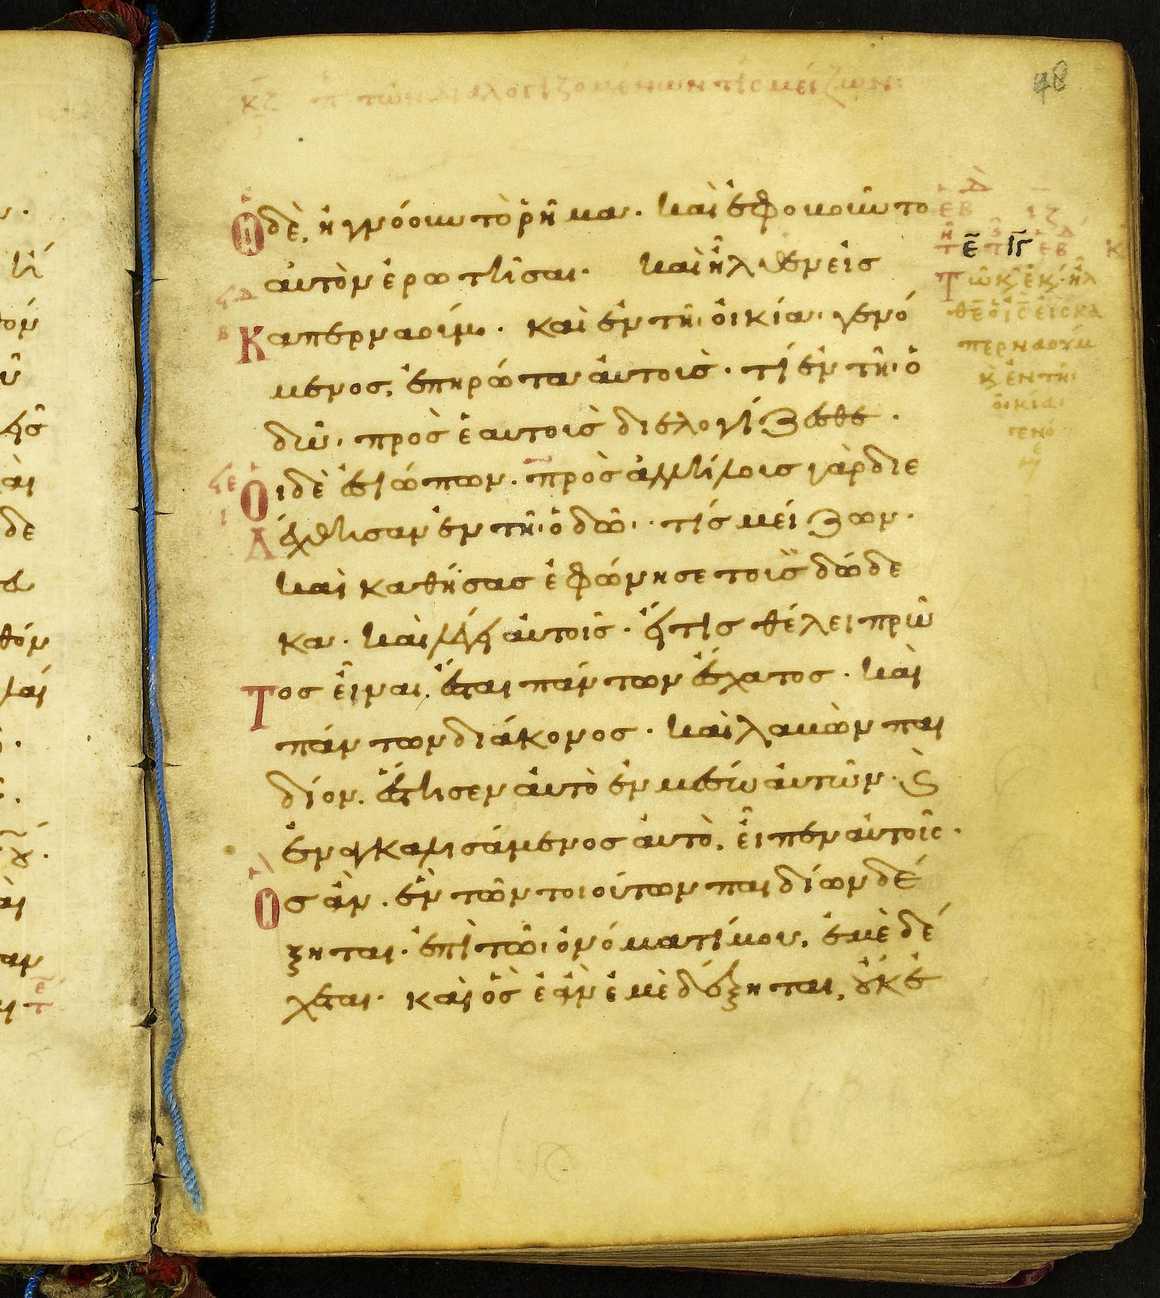 κζ π τῶν διαλογιζομένων τίς μείζων
48
Οἱ δὲ, ἠγνόουν τὸ ῥῆμα· καὶ ἐφοβοῦντο
αὐτὸν ἐρωτῆσαι· καὶ ἦλθεν εἰς
Καπερναούμ· καὶ ἐν τῆ οἰκία γενό
μενος, ἐπηρώτα αὐτοῖς· τί ἐν τῆ ὁ
δῶ, πρὸς ἑαυτοῖς διελογίζεσθε·
Οἱ δὲ ἐσιώπων· πρὸς ἀλλήλοις γὰρ διε
λέχθησαν ἐν τῆ ὁδῶ· τίς μείζων·
καὶ καθήσας ἐφώνησε τοῖς δώδε
κα· καὶ λέγει αὐτοῖς· εἴ τις θέλει πρῶ
Τος εἶναι, ἔσται πάντων ἔσχατος· καὶ
πάντων διάκονος· καὶ λαβὼν παι
δίον, ἔστησεν αὐτὸ ἐν μέσω αὐτῶν· ϗ
ἐναγκαλισάμενος αὐτὸ, εἶπεν αὐτοῖς·
Ὃς ἂν ἓν τῶν τοιούτων παιδίων δέ
ξηται· ἐπὶ τῶ ὀνόματί μου, ἐμὲ δέ
χεται· καὶ ὃς ἐὰν ἐμὲ δέξηται, οὐκ ἐ
Τῶ κ ἐκ ἦλ
θεν ὁ ις εἰς κα
περναούμ
κ ἐν τῆ
οἰκία
γενό